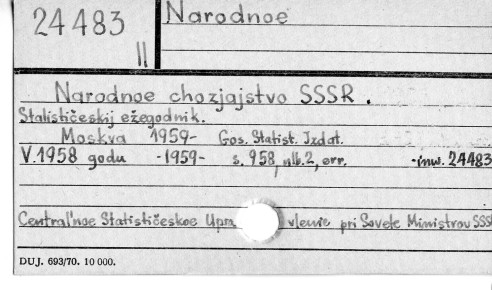 24483
II
Narodnoe
Narodnoe chozjajstvo SSSR.
Statističeskij ežegodnik.
Moskva 1959- Gos. Statist. Izdat.
V. 1958 godu -1959- s. 958, nlb. 2, err. -inw. 24483
Central'noe Statističeskoe Upra vlenie pri Sovete Ministrov SSS
DUJ. 693/70. 10 000.